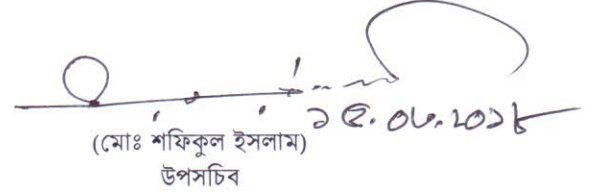 ১৫.০৬.২০১৮
(মোঃ শফিকুল ইসলাম)
উপসচিব